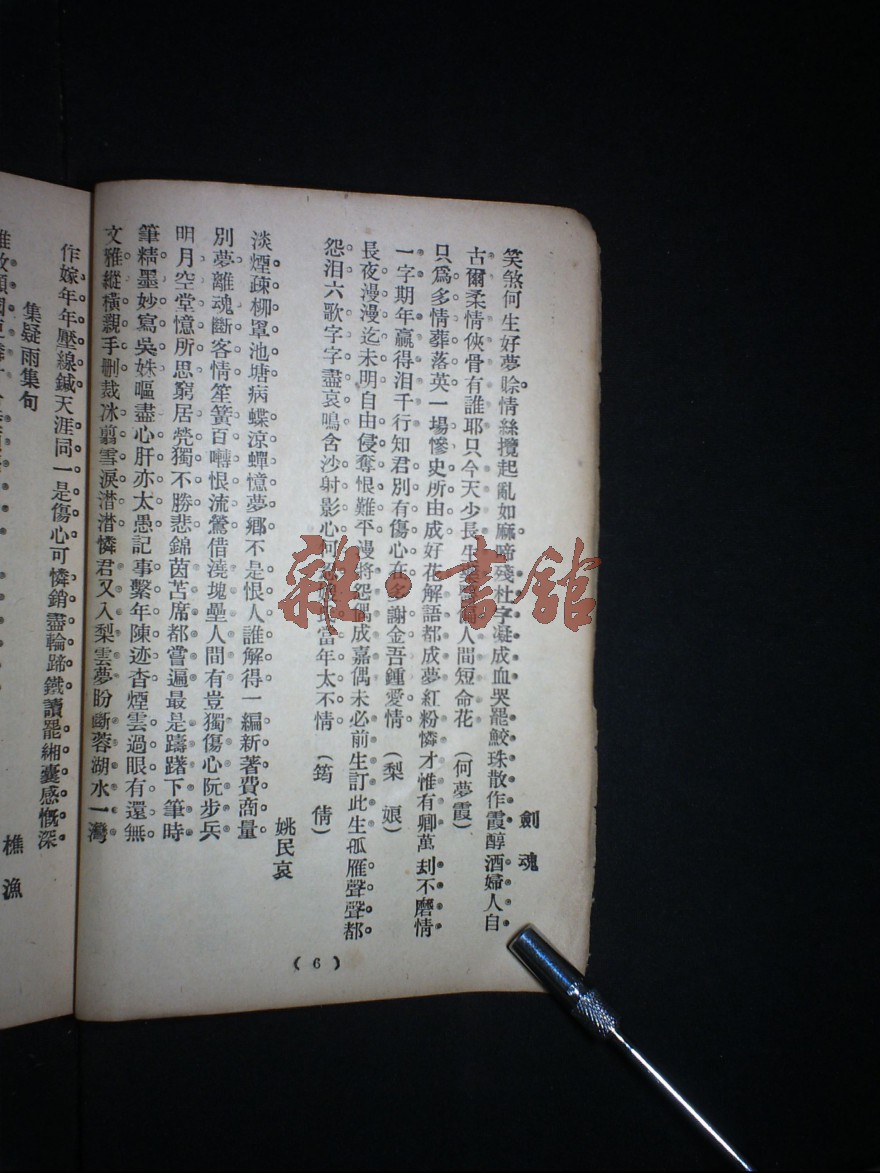 劍魂
笑煞何生好夢賒情絲攪起亂如麻啼殘杜宇凝成血哭罷鮫珠散作霞醇酒婦人自
古爾柔情俠骨有誰耶只今天少長生人間短命花（何夢霞）
只爲多情葬落英一場慘史所由成好花解語都成夢紅粉憐才惟有卿萬刦不磨情
一字期年贏得泪千行知君別有傷心在多謝金吾鍾愛情（梨娘）
長夜漫漫迄未明自由侵奪恨難平漫將怨偶成嘉偶未必前生訂此生孤雁聲聲都
怨泪六歌字字盡哀鳴含沙射影心何當年太不情（筠倩）
姚民哀
淡煙疎柳罩池塘病蝶涼蟬憶夢鄉不是恨人誰解得一編新著費商量
別夢離魂斷客情笙簧百囀恨流鶯借澆塊壘人間有豈獨傷心阮步兵
明月空堂憶所思窮居煢獨不勝悲錦茵苫席都嘗遍最是躊躇下筆時
筆精墨妙寫吳姝嘔盡心肝亦太愚記事繫年陳迹杳煙雲過眼有還無
文雅縱橫親手删裁冰翦雪淚潸潸憐君又入梨雲夢盼斷蓉湖水一灣
（6）
作嫁年年壓線鍼天涯同一是傷心可憐銷盡輪蹄鐵讀罷緗囊感慨深
集疑雨集句
樵漁
雜·書館